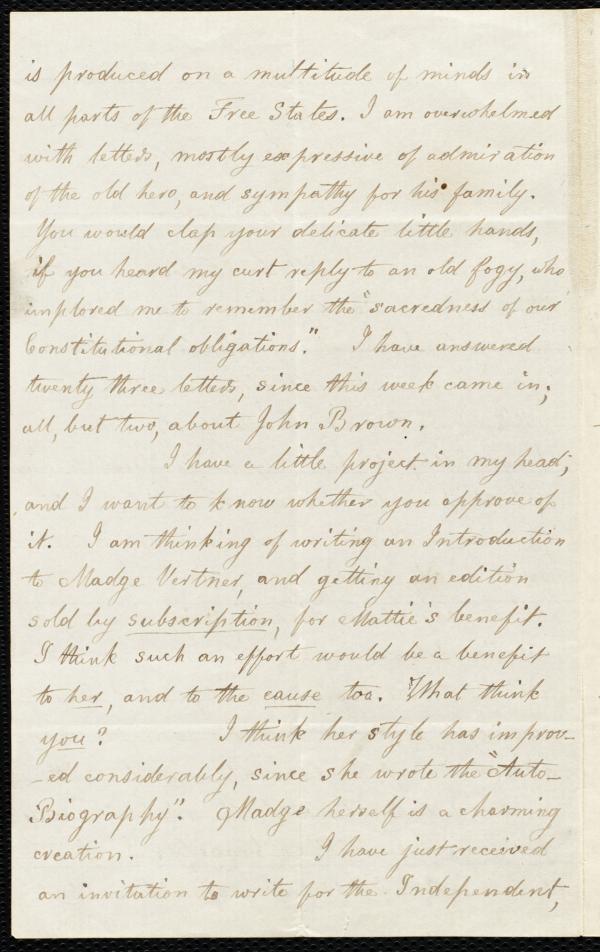 is produced on a multitude of minds in
all parts of the Free States. I am overwhelmed
with letters, mostly expressive of admiration
of the old hero, and sympathy for his family.
You would clap your delicate little hands,
if you heard my curt reply to an old fogy, who
implored me to remember the "sacredness of our
Constitutional obligations." I have answered
twenty three letters, since this week came in;
all, but two, about John Brown.
I have a little project in my head;
and I want to know whether you approve of
it. I am thinking of writing an Introduction
to Madge Vertner, and getting an edition
sold by subscription, for Mattie's benefit.
I think such an effort would be a benefit
to her, and to the cause too. What think
you? I think her style has improv-
-ed considerably, since she wrote the "Auto-
Biography". Madge herself is a charming
creation. I have just received
an invitation to write for the Independent,